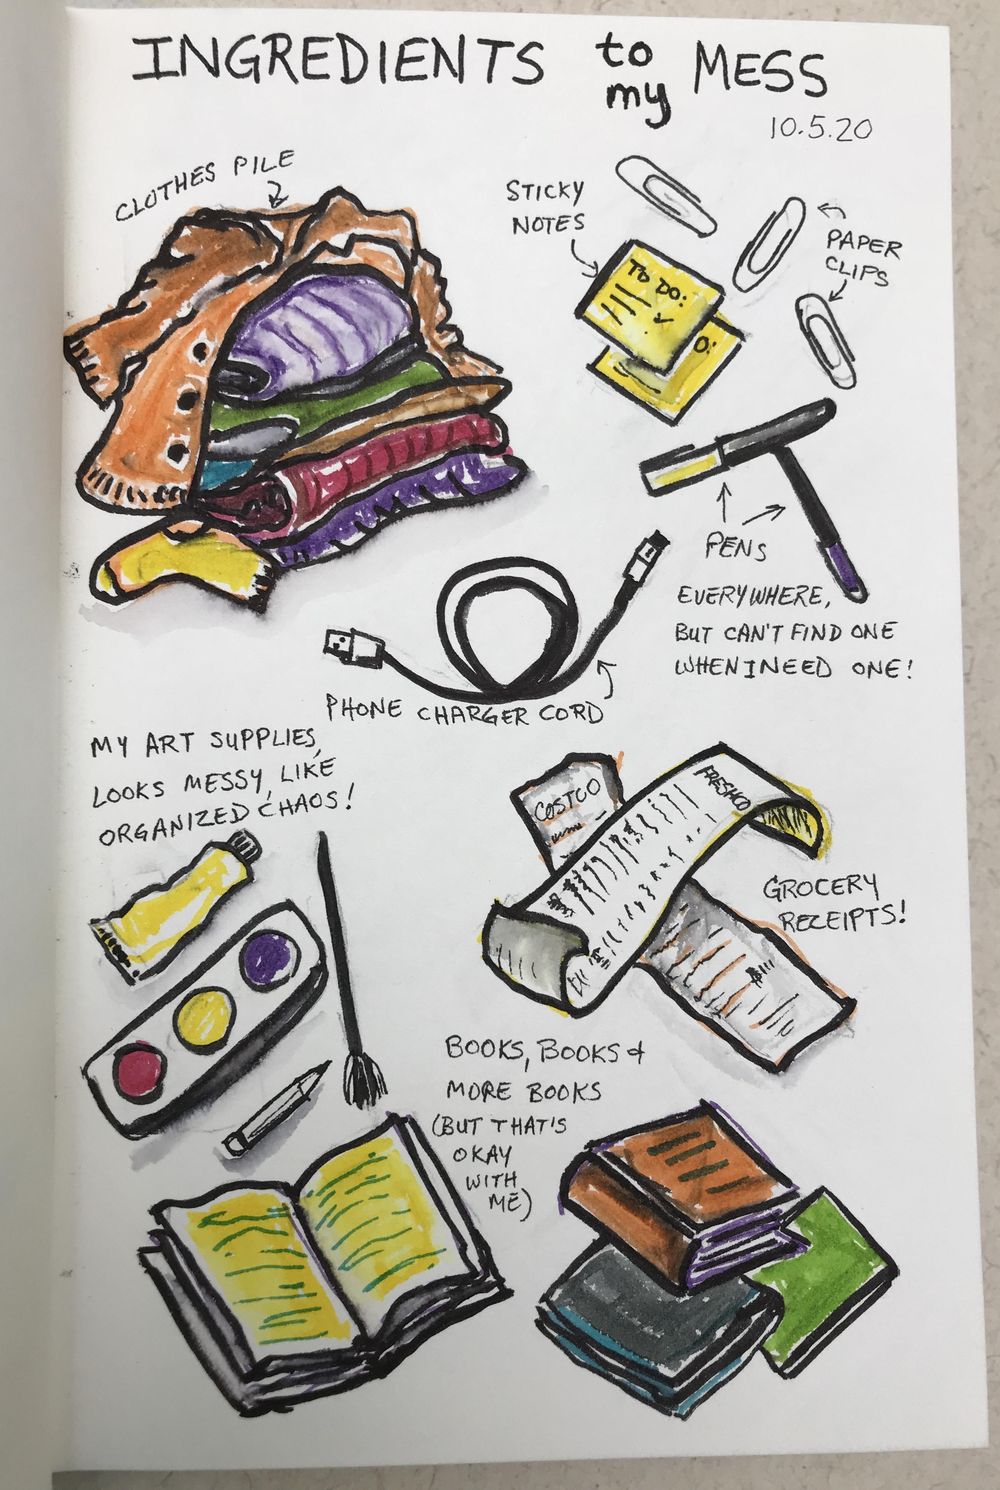 INGREDIENTS to my MESS
10.5.20
CLOTHES PILE
STICKY
NOTES
PAPER
CLIPS
TO DO:
O:
PENS
EVERYWHERE,
BUT CAN'T FIND ONE
WHEN I NEED ONE!
PHONE CHARGER CORD
MY ART SUPPLIES,
LOOKS MESSY, LIKE
ORGANIZED CHAOS!
COSTCO
FRESHCO
GROCERY
RECEIPTS!
BOOKS, BOOKS &
MORE BOOKS
(BUT THAT'S
OKAY
WITH
ME)